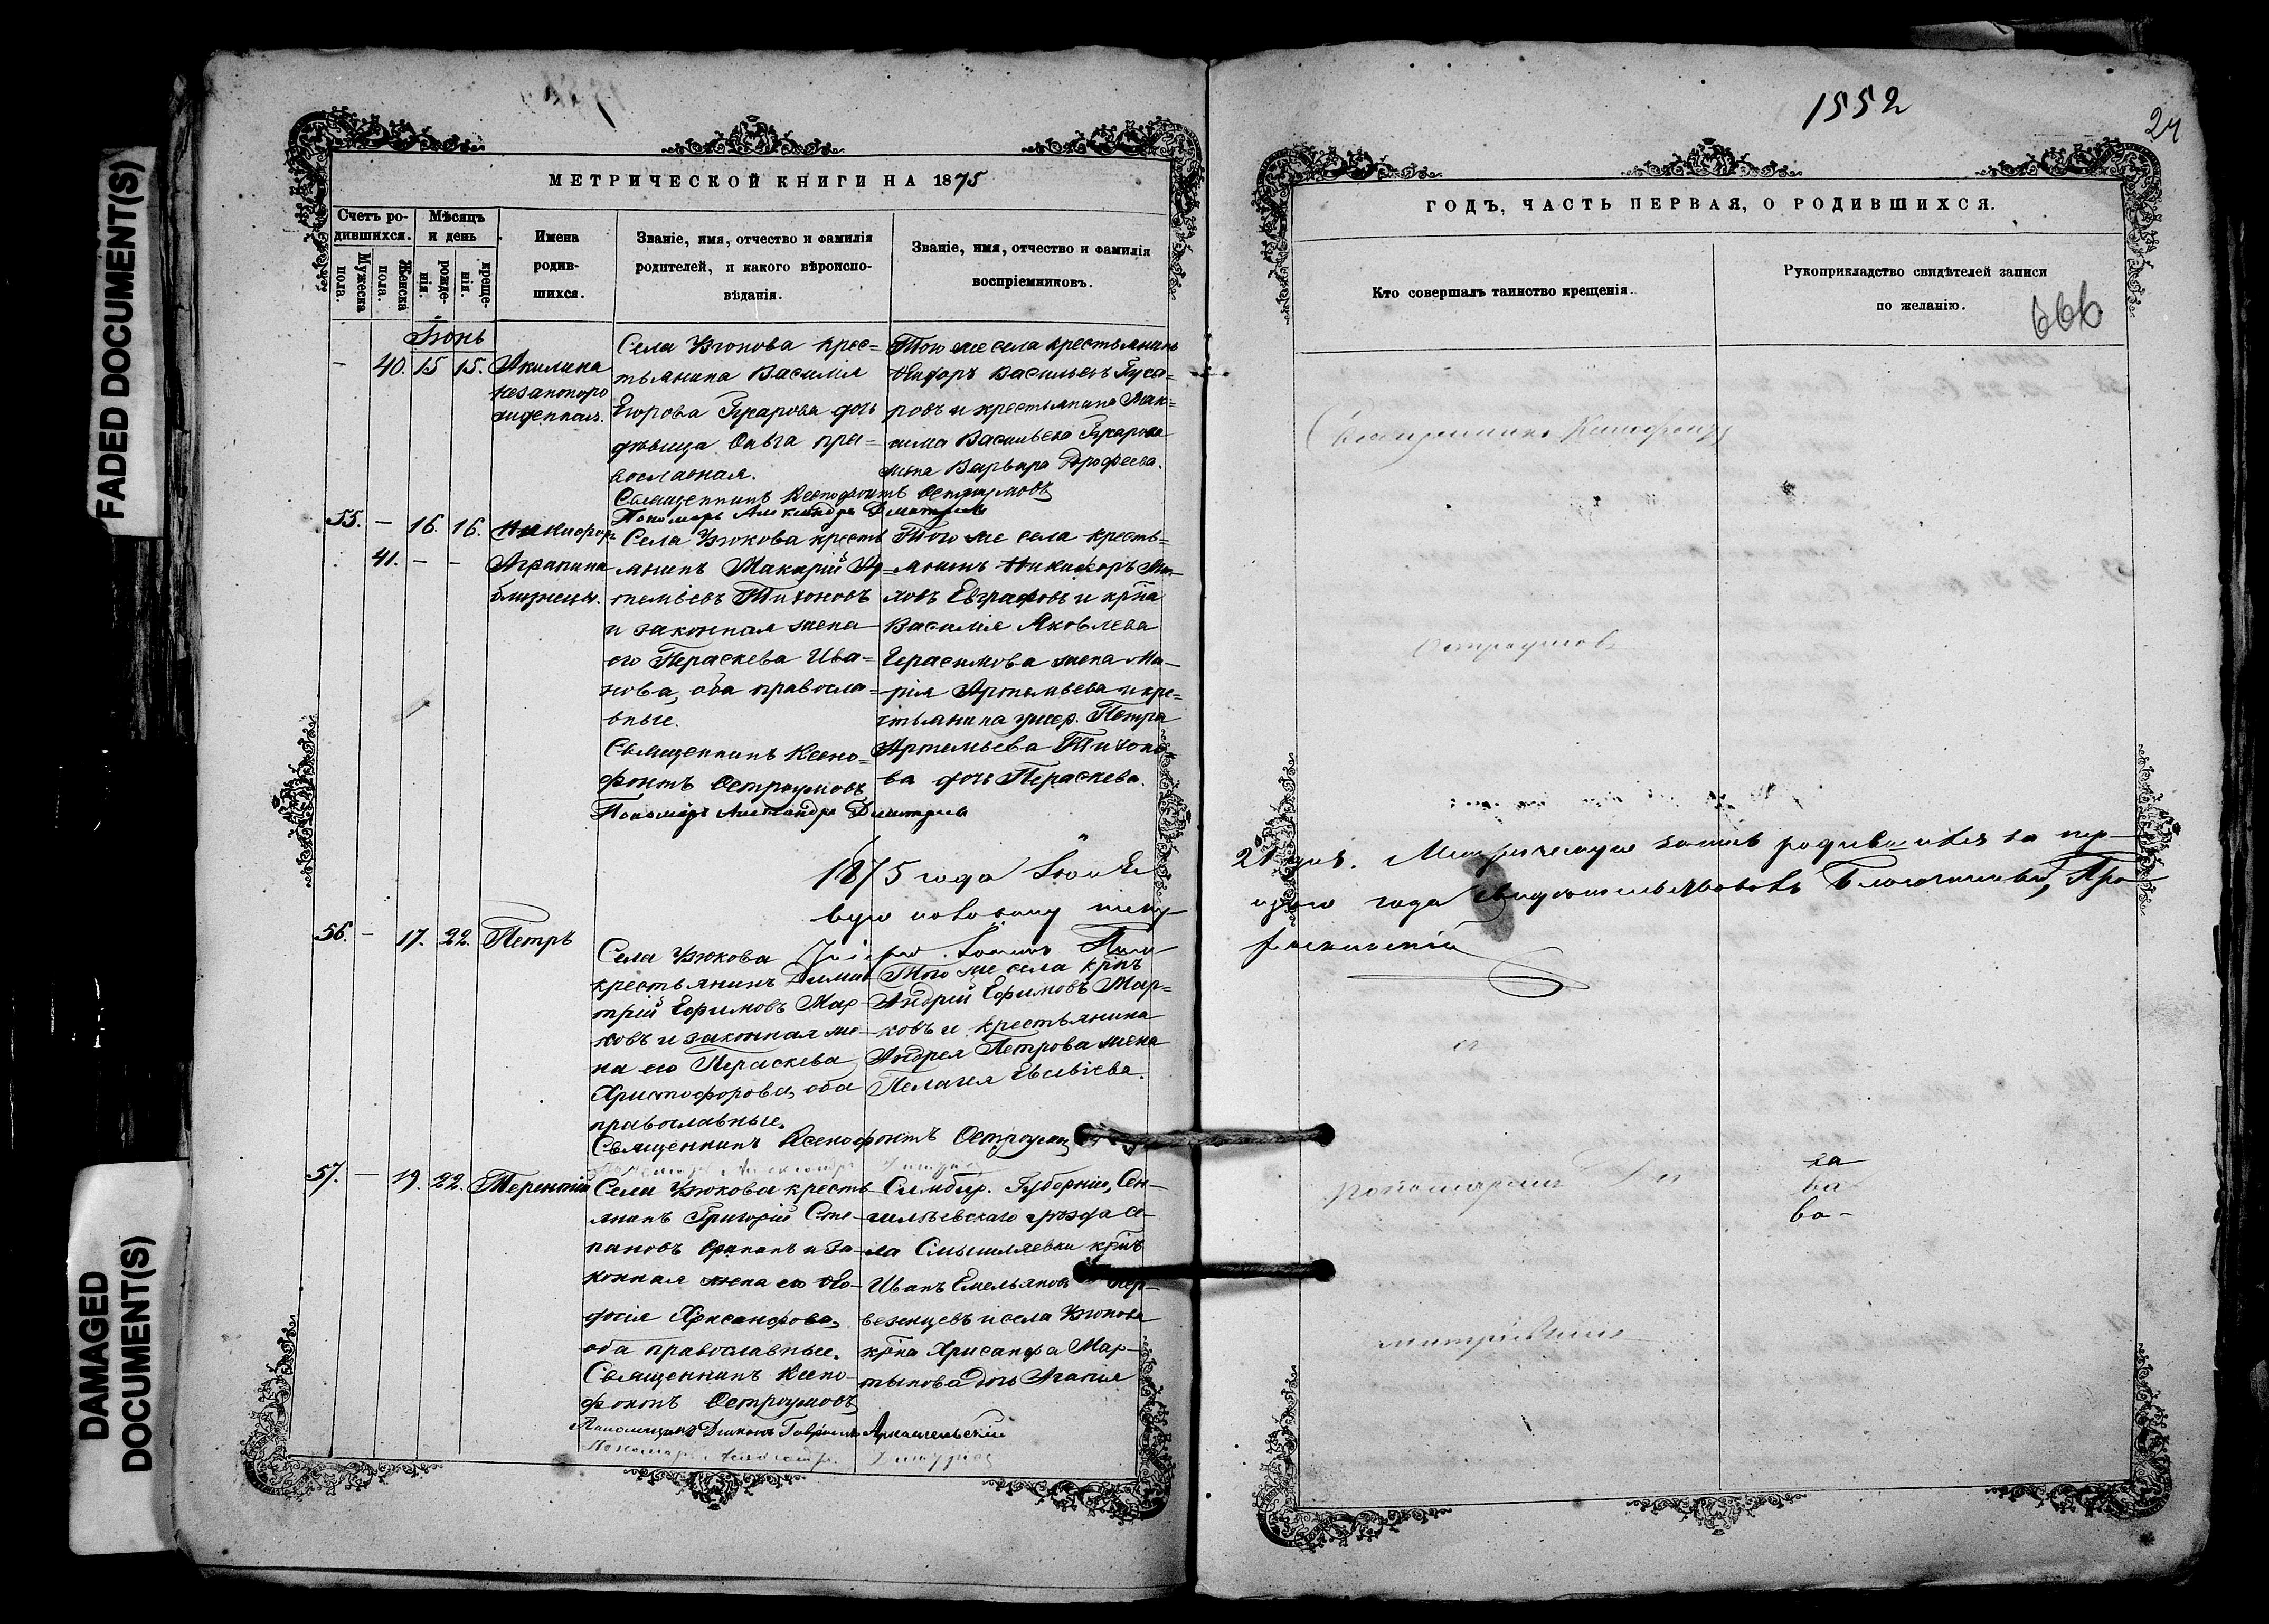 FADED DOCUMENT(S)
DAMAGED
DOCUMENT(S)
МЕТРИЧЕСКОЙ КНИГИ НА 1875
Счетъ ро-
дившихся.
Мужеска
пола.
Женска
пола.
Мѣсяцъ
и день
рожде-
нія.
креще-
нія.
Имена
родив-
шихся.
Званіе, имя, отчество и фамилія
родителей, и какого вѣроиспо-
вѣданія.
Званіе, имя, отчество и фамилія
воспріемниковъ.
Іюнь
— 40. 15 15. Акилина
незаконоро
жденная.
Села Узюкова крес=
тьянина Василія
Егорова Гусарова дочь
дѣвица Ольга пра=
вославная.
Священникъ Ксенофонтъ Остроумовъ
Пономарь Александръ Дмитріевъ
Того же села крестьянинъ
Ѳедоръ Васильевъ Гуса=
ровъ и крестьянина Мак=
сима Васильева Гусарова
жена Варвара Дорофеева.
55. — 16. 16. Никифоръ
41. — — Агрипина
близнецы.
Села Узюкова кресть
янинъ Макарій Ар=
темьевъ Тихоновъ
и законная жена
его Параскева Ива=
нова, оба правосла=
вные.
Священникъ Ксено=
фонтъ Остроумовъ
Пономарь Александръ Дмитріевъ
Того же села кресть=
янинъ Никифоръ
Евграфовъ и кр̃на
Василія Яковлева
Герасимова жена Ма-
рія Артемьева и кре=
стьянина умер. Петра
Артемьева Тихоно-
ва дочь Параскева.
1875 года Іюля
вую половину
56. — 17. 22. Петръ
Села Узюкова
крестьянинъ Дими
трій Ефимовъ Мар
ковъ и законная же-
на его Параскева
Христофорова, оба
православные.
Священникъ Ксенофонтъ Остроумовъ
Того же села кр̃нъ
Андрій Ефимовъ Мар=
ковъ и крестьянина
Андрея Петрова жена
Пелагея Евсевіева.
57. — 19. 22. Терентій
Села Узюкова кресть
янинъ Григорій Сте-
пановъ и за-
конная жена его Ѳео-
досія Хрисанфова,
оба православные.
Священникъ Ксено-
фонтъ Остроумовъ
Діаконъ Гавріилъ Архангельскій
Пономарь Александръ Дмитріевъ
Симбир. Губерніи, Сен-
гилѣевскаго уѣзда се-
ла Смышляевки кр̃нъ
Иванъ Емельяновъ Пер-
венцевъ и села Узюкова
кр̃на Хрисанфа Мар-
тынова дочь Агапія
1552
24
ГОДЪ, ЧАСТЬ ПЕРВАЯ, О РОДИВШИХСЯ.
Кто совершалъ таинство крещенія.
Рукоприкладство свидѣтелей записи
по желанію.
666
Священникъ Ксенофонтъ
Остроумовъ
21 дня. Метрическую запись родившихся за пер-
года свидѣтельствовалъ Благочинный, Про
съ
Пономаремъ
ка
ва
ва-